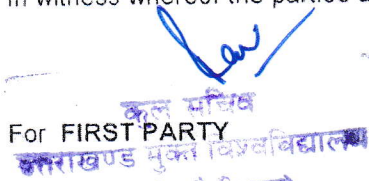 In witness whereof the parties a
कुल सचिव
For FIRST PARTY
उत्तराखण्ड मुक्त विश्वविद्यालय